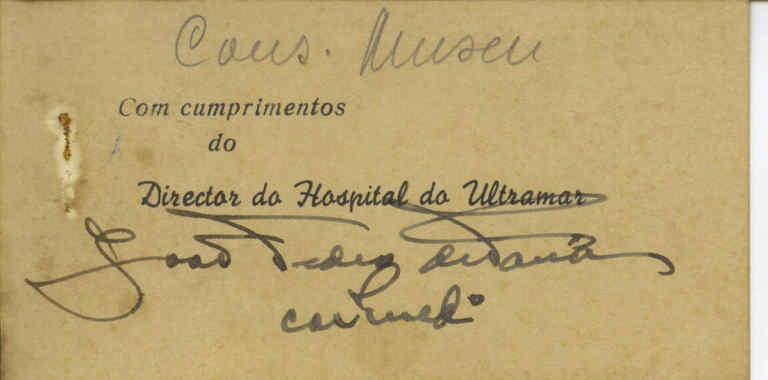 Cons. Museu
Com cumprimentos
do
Director do Hospital do Ultramar
João Pedro de Faria